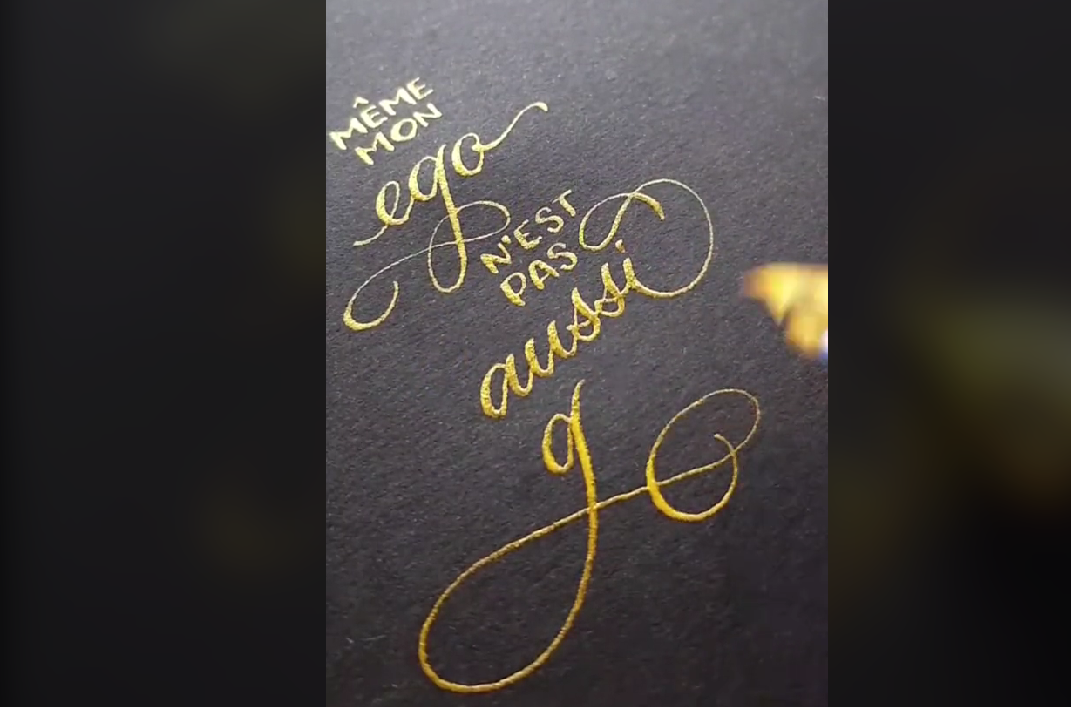 MÊME
MON
ego
N'EST
PAS
aussi
g